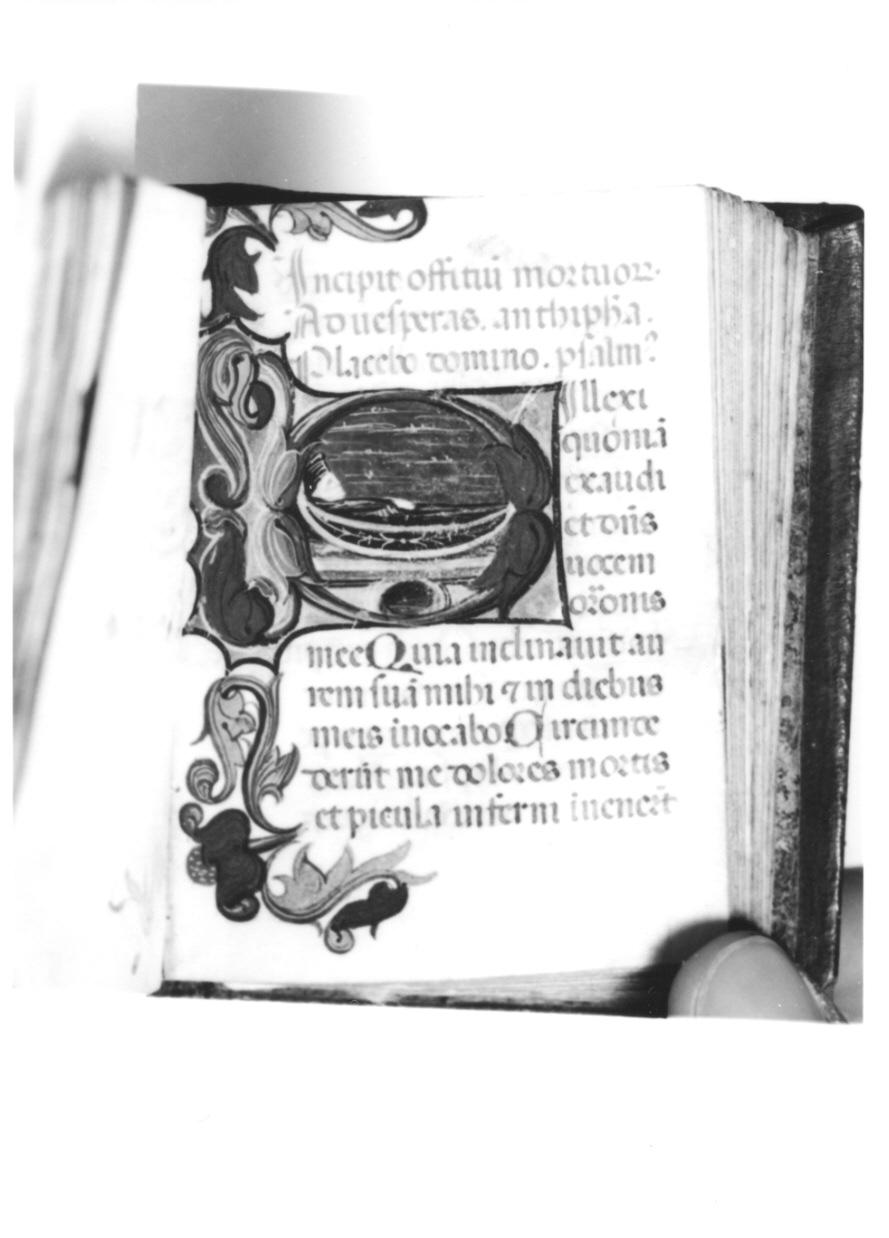 Incipit offitiū mortuoꝝ.
Ad uesperas. anthiph̄a.
Placebo domino. psalmꝰ
Ilexi
quoniā
exaudi
et dn̄s
uocem
or̄onis
mee Quia inclinauit au
rem suā mihi ⁊ in diebus
meis inuocabo Circunde
derūt me dolores mortis
et picula inferni inuener̄t